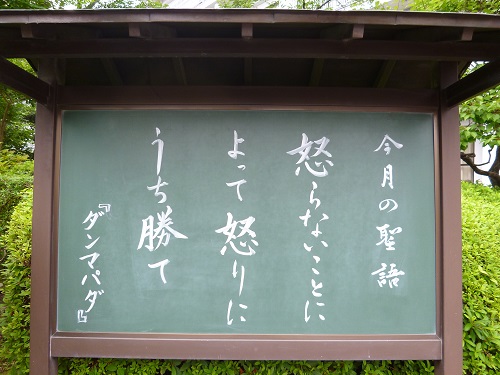 今月の聖語
怒らないことに
よって怒りに
うち勝て
『ダンマパダ』